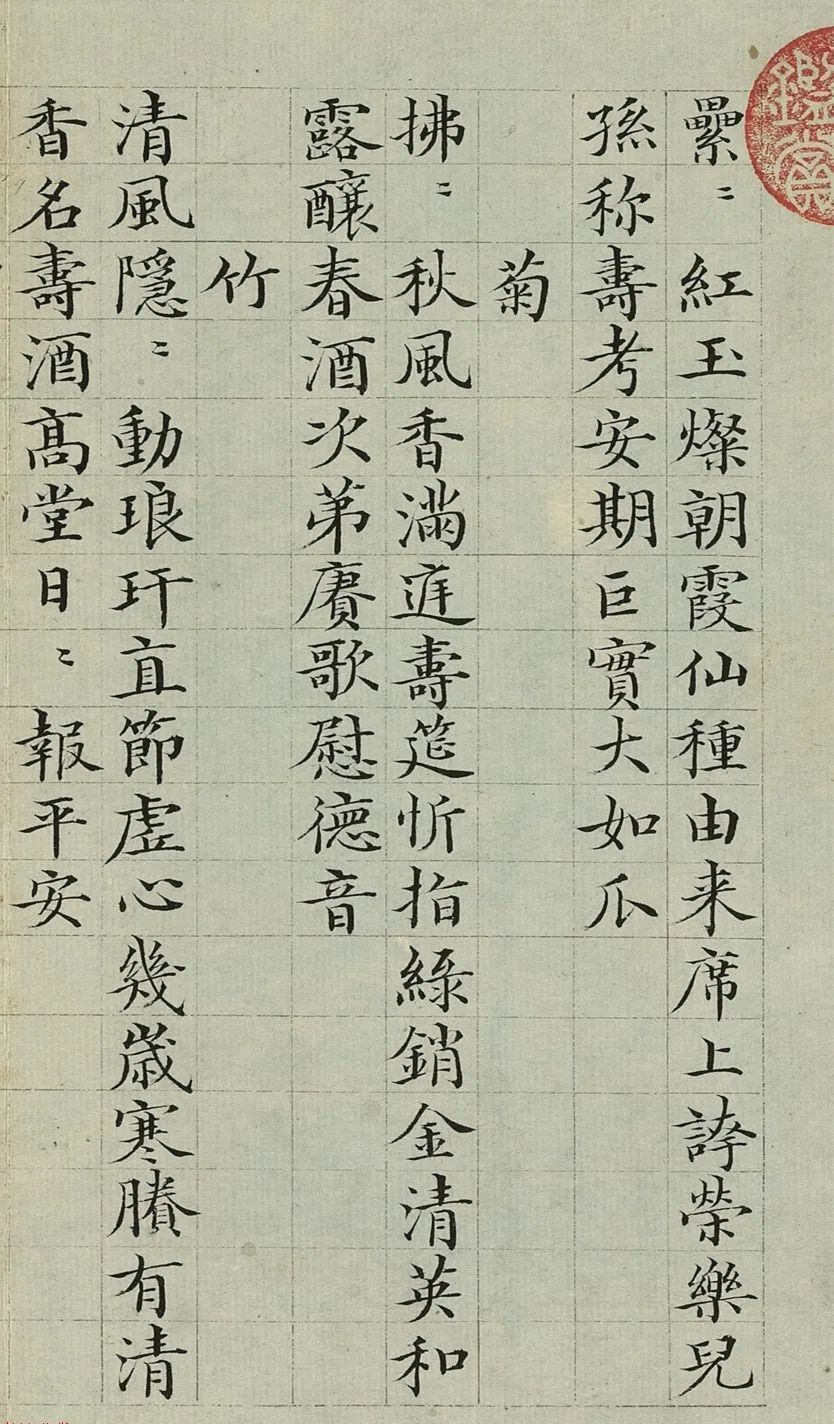 纍〻紅玉燦朝霞仙種由来席上誇榮樂兒
孫称壽考安期巨實大如瓜
菊
拂〻秋風香滿庭壽筵忻指綠銷金清英和
露釀春酒次第賡歌慰德音
竹
清風隱〻動琅玕直節虛心幾歲寒賸有清
香名壽酒高堂日〻報平安